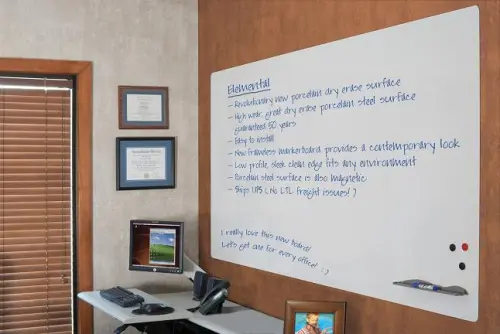 Elemental
– Revolutionary new porcelain dry erase surface
– High wear, great dry erase porcelain steel surface
guaranteed 50 years
– Easy to install
– New frameless markerboard provides a contemporary look
– Low profile, sleek clean edge fits any environment
– Porcelain steel surface is also magnetic
– Ships UPS (No LTL freight issues!)
I really love this new board!
Let's get one for every office! :)